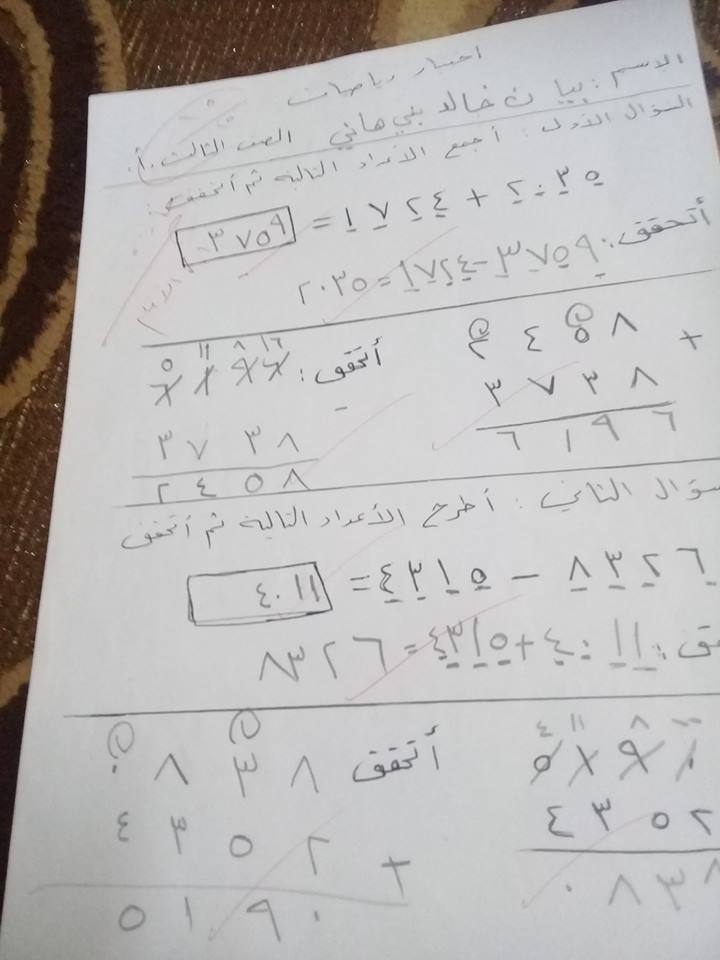 اختبار رياضيات
الاسم : بيان خالد بني هاني الصف الثالث . أ.
السؤال الأول : أجمع الأعداد التالية ثم أتحقق :
٢٠٣٥ + ١٧٢٤ = ٣٧٥٩
أتحقق : ٣٧٥٩ - ١٧٢٤ = ٢٠٣٥
٢٤٥٨ +
٣٧٣٨
٦١٩٦
أتحقق :
٥ ١١ ٨ ١٦
٦١٩٦ -
٣٧٣٨
٢٤٥٨
سؤال الثاني : أطرح الأعداد التالية ثم أتحقق
٨٣٢٦ - ٤٣١٥ = ٤٠١١
قق : ٤٠١١ + ٤٣١٥ = ٨٣٢٦
٤ ١١ ٨ ١٠
٥١٩٠
٤٣٥٢
٠٨٣٨
أتحقق
٠٨٣٨
٤٣٥٢ +
٥١٩٠